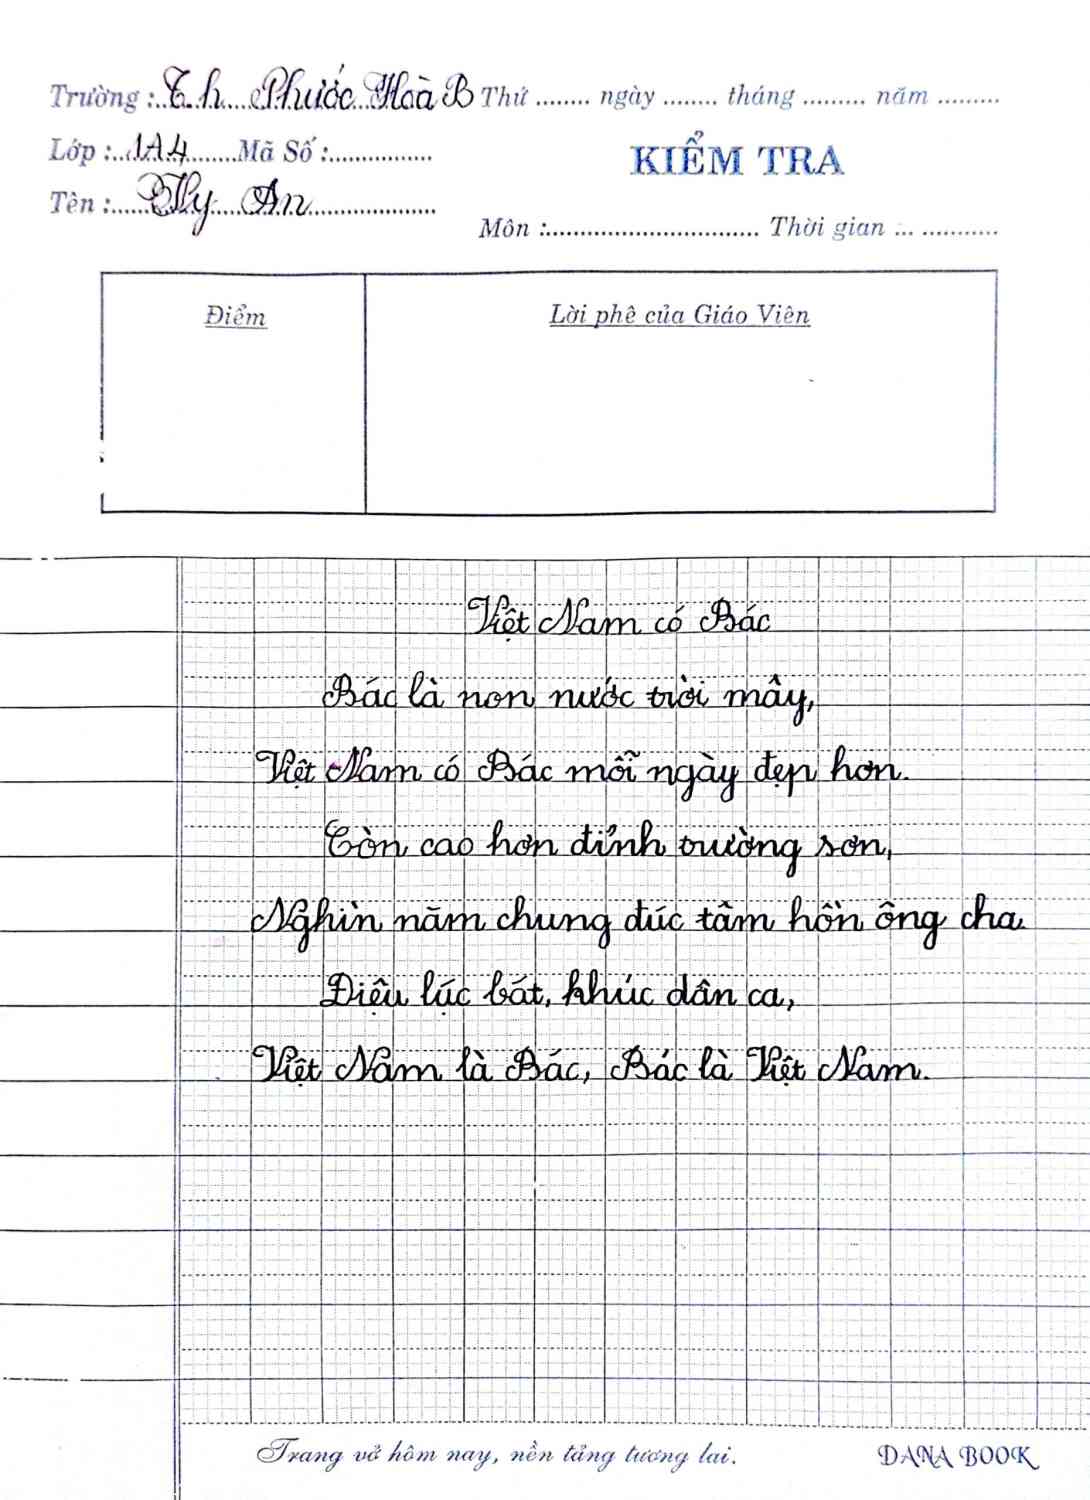 Trường :..Th Phước Hoà B Thứ ........ ngày ........ tháng ......... năm .........
Lớp :...1A4.......Mã Số :...............
KIỂM TRA
Tên :.....Thy An..................
Môn :.............................. Thời gian ... ...........
Điểm
Lời phê của Giáo Viên
Việt Nam có Bác
Bác là non nước trời mây,
Việt Nam có Bác mỗi ngày đẹp hơn.
Còn cao hơn đỉnh trường sơn,
Nghìn năm chung đúc tâm hồn ông cha.
Điệu lục bát, khúc dân ca,
Việt Nam là Bác, Bác là Việt Nam.
Trang vở hôm nay, nền tảng tương lai.
DANA BOOK